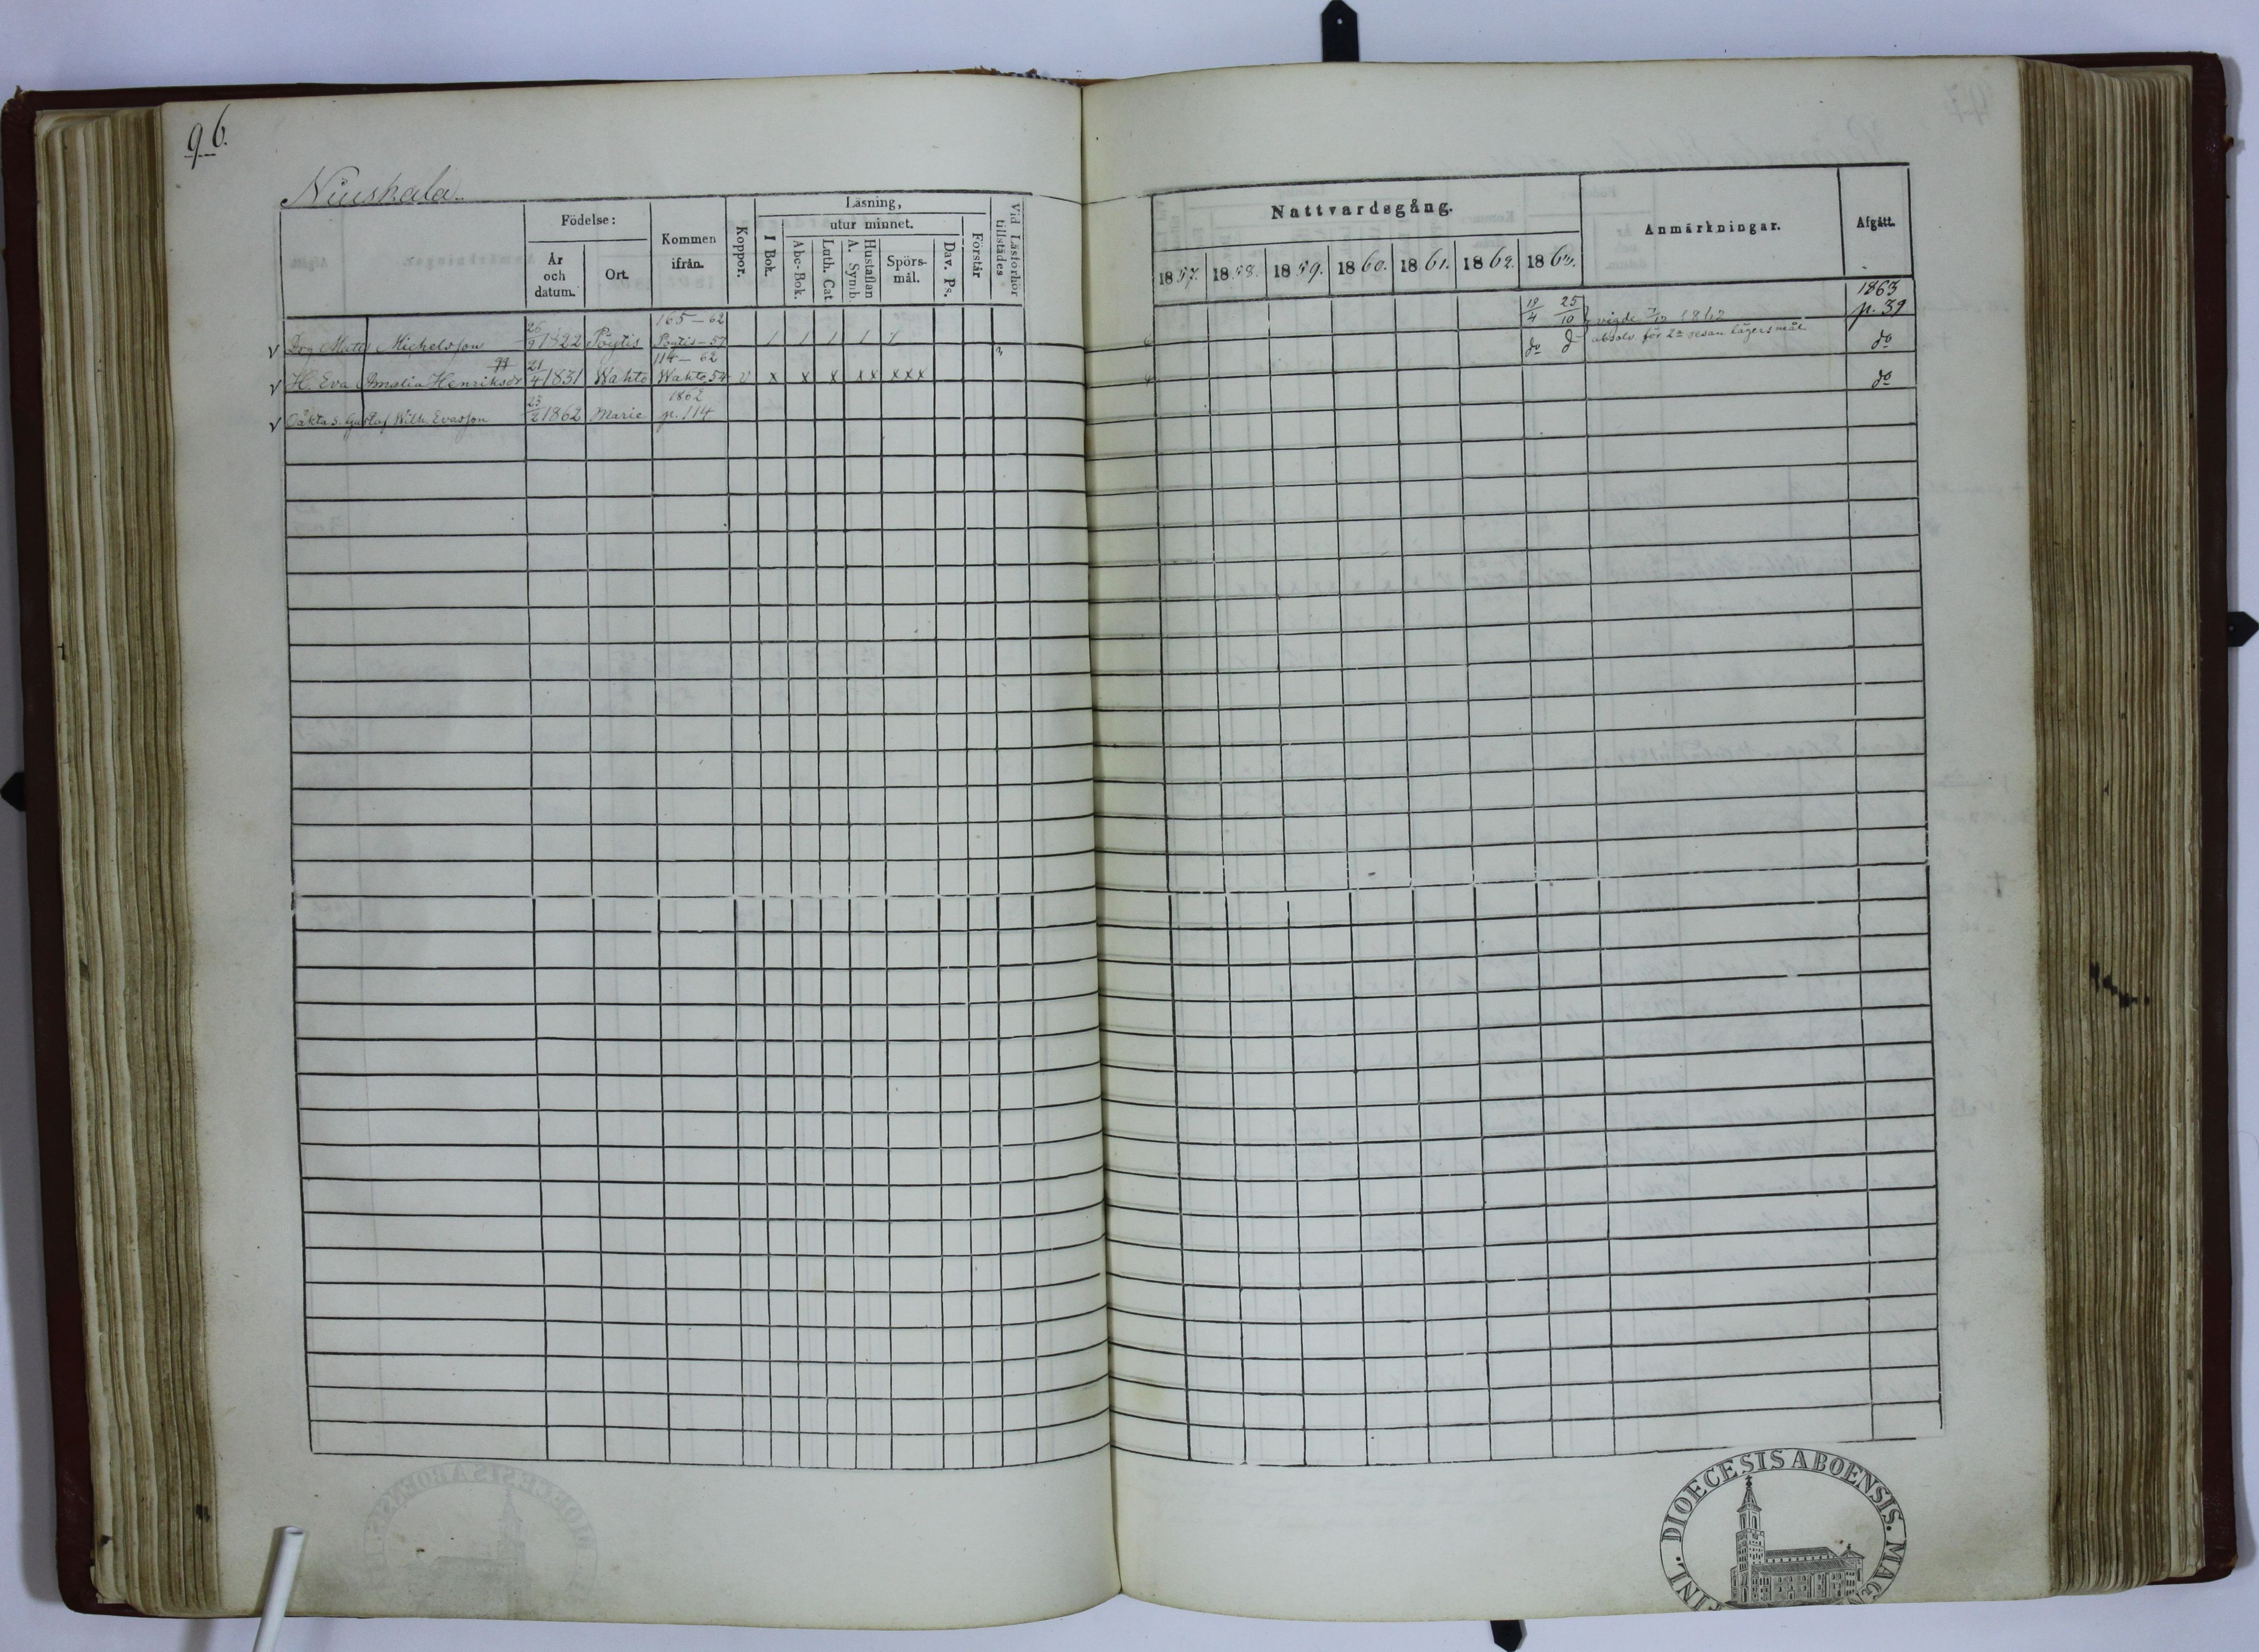 96.
Niuskala.
Födelse:
År och datum.
Ort.
Kommen ifrån.
Koppor.
Läsning,
I Bok.
utur minnet.
Abc-Bok.
Luth. Cat
Hustaflan A. Symb.
Spörs-mål.
Dav. Ps.
Förstår
Vid Läsförhör tillstädes
Nattvardsgång.
1857. 1858. 1859. 1860. 1861. 1862. 1863.
Anmärkningar.
Afgått.
v Drg Matts Michelsson 26/9 1822 Pöytis 165-62 Pöytis-57 / / / / / 19/4 25/10 vigde 1862 1863 p. 39
v H. Eva Amalia Henriksdr 21/4 1831 Wahto 114-62 Wahto 54 v x x x xx xxx do do absolv. för 2a resan lägersmål do
v Oäkta s. Gustaf Wilh. Evasson 23/2 1862 Marie 1862 p. 114 do
FINL. DIOECESIS ABOENSIS. MAGN